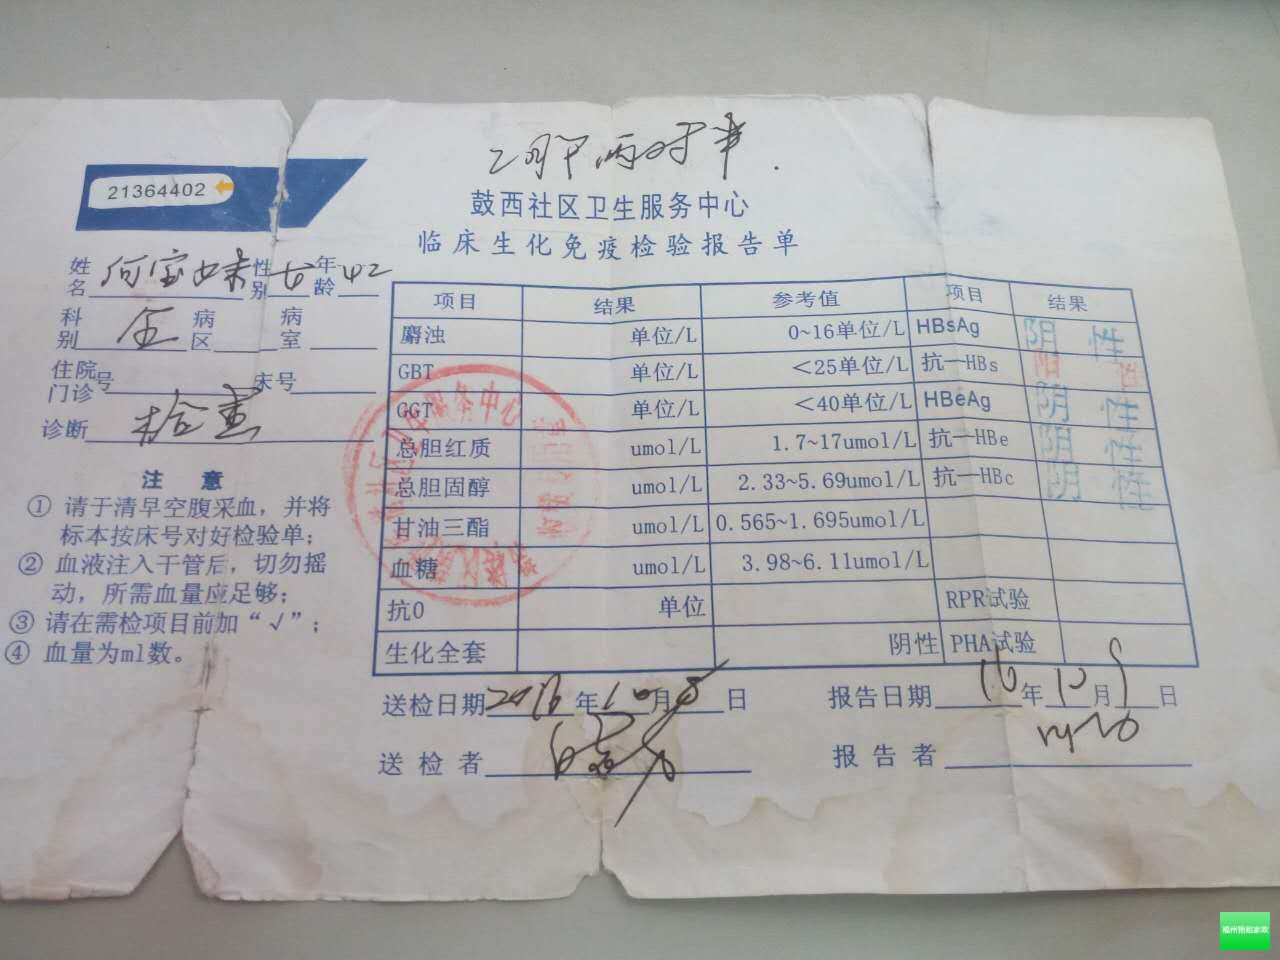 乙肝两对半.
21364402
鼓西社区卫生服务中心
临床生化免疫检验报告单
姓名 何宝妹 性别 女 年龄 42
科别 全 病区 病室
住院门诊号 床号
诊断 检查
注 意
① 请于清早空腹采血，并将
标本按床号对好检验单；
② 血液注入干管后，切勿摇
动，所需血量应足够；
③ 请在需检项目前加“√”；
④ 血量为ml数。
项目 结果 参考值 项目 结果
麝浊 单位/L 0~16单位/L HBsAg 阴性
GBT 单位/L <25单位/L 抗—HBs 阳性
GGT 单位/L <40单位/L HBeAg 阴性
总胆红质 umol/L 1.7~17umol/L 抗—HBe 阴性
总胆固醇 umol/L 2.33~5.69umol/L 抗—HBc 阴性
甘油三酯 umol/L 0.565~1.695umol/L
血糖 umol/L 3.98~6.11umol/L
抗0 单位 RPR试验
生化全套 阴性 PHA试验
送检日期 2016年10月8日 报告日期 16年10月9日
送检者 报告者
服务中心
福州艳姐家政